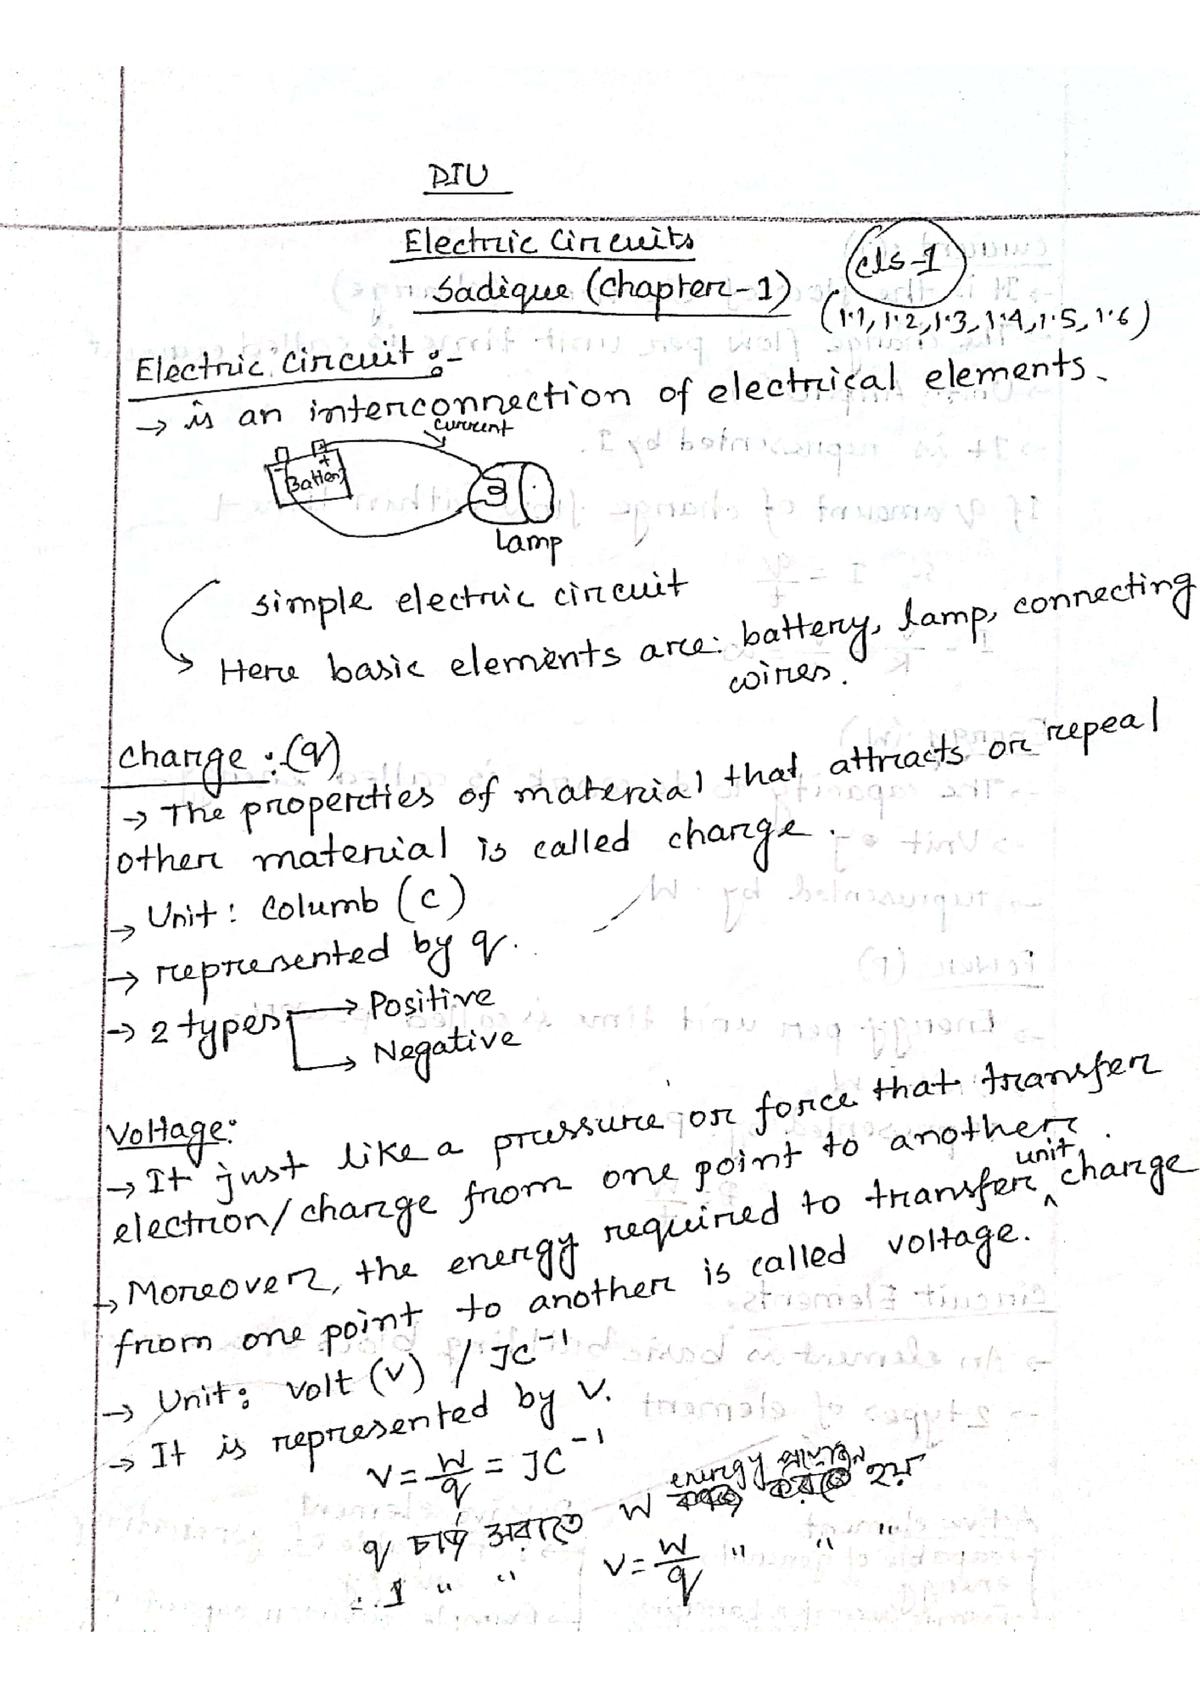 DIU
Electric Circuits
Sadique (Chapter-1)
cls-1
(1.1, 1.2, 1.3, 1.4, 1.5, 1.6)
Electric Circuit :-
→ is an interconnection of electrical elements.
current
Battery
- +
Lamp
simple electric circuit
Here basic elements are: battery, lamp, connecting
wires.
Charge : (q)
→ The properties of material that attracts or repeal
other material is called charge.
→ Unit: Columb (C)
→ represented by q.
→ 2 types → Positive
→ Negative
Voltage:
→ It just like a pressure or force that transfer
electron/charge from one point to another.
unit
→ Moreover, the energy required to transfer ^ charge
from one point to another is called voltage.
→ Unit: Volt (V) / JC⁻¹
→ It is represented by V.
V = W/q = JC⁻¹
energy প্রয়োজন
q চার্জ সরাতে W হয়
∴ 1 " " V = W/q " " "